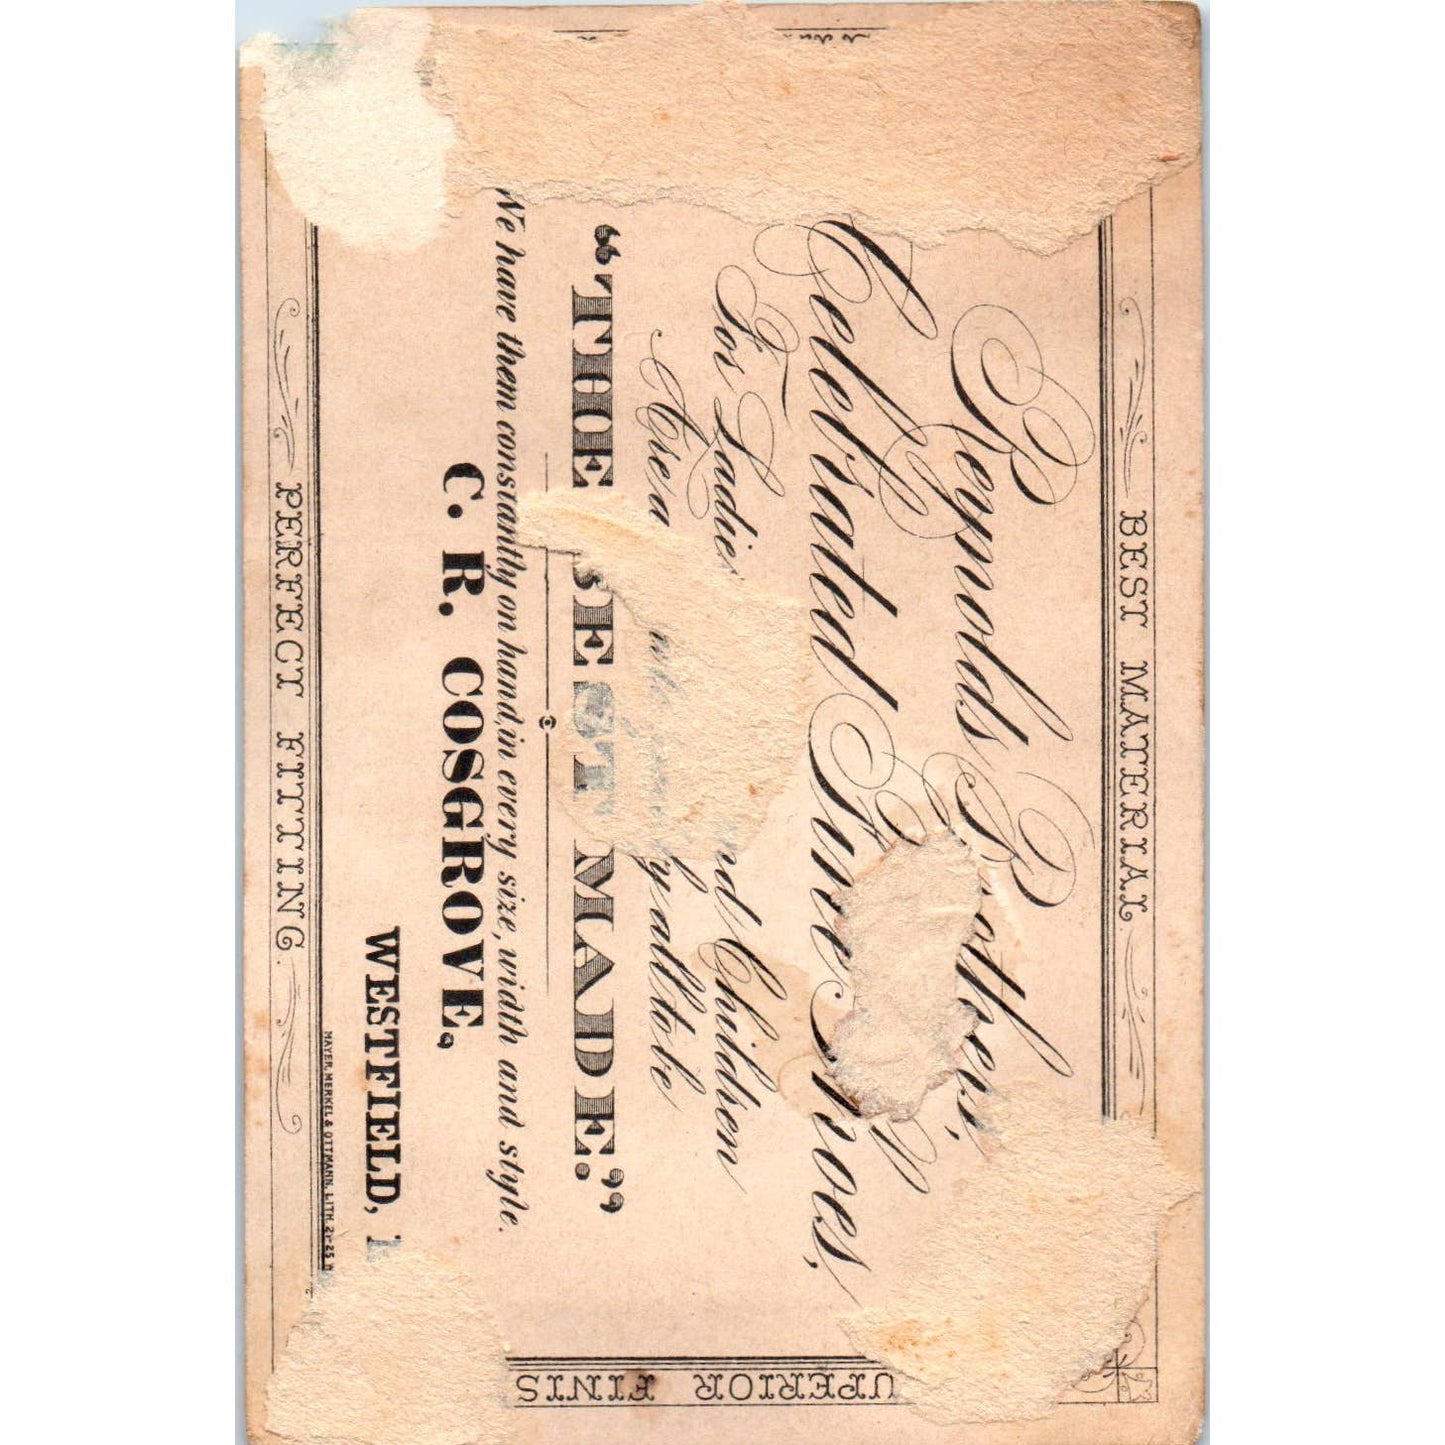 BEST MATERIAL
Reynolds Brothers,
Celebrated Fine Shoes,
For Ladies and Children
Are a by all to be
"THE BEST MADE."
We have them constantly on hand, in every size, width and style.
C. R. COSGROVE,
WESTFIELD,
MAYER, MERKEL & OTTMANN, LITH. 21-25
PERFECT FITTING.
UPERIOR FINIS